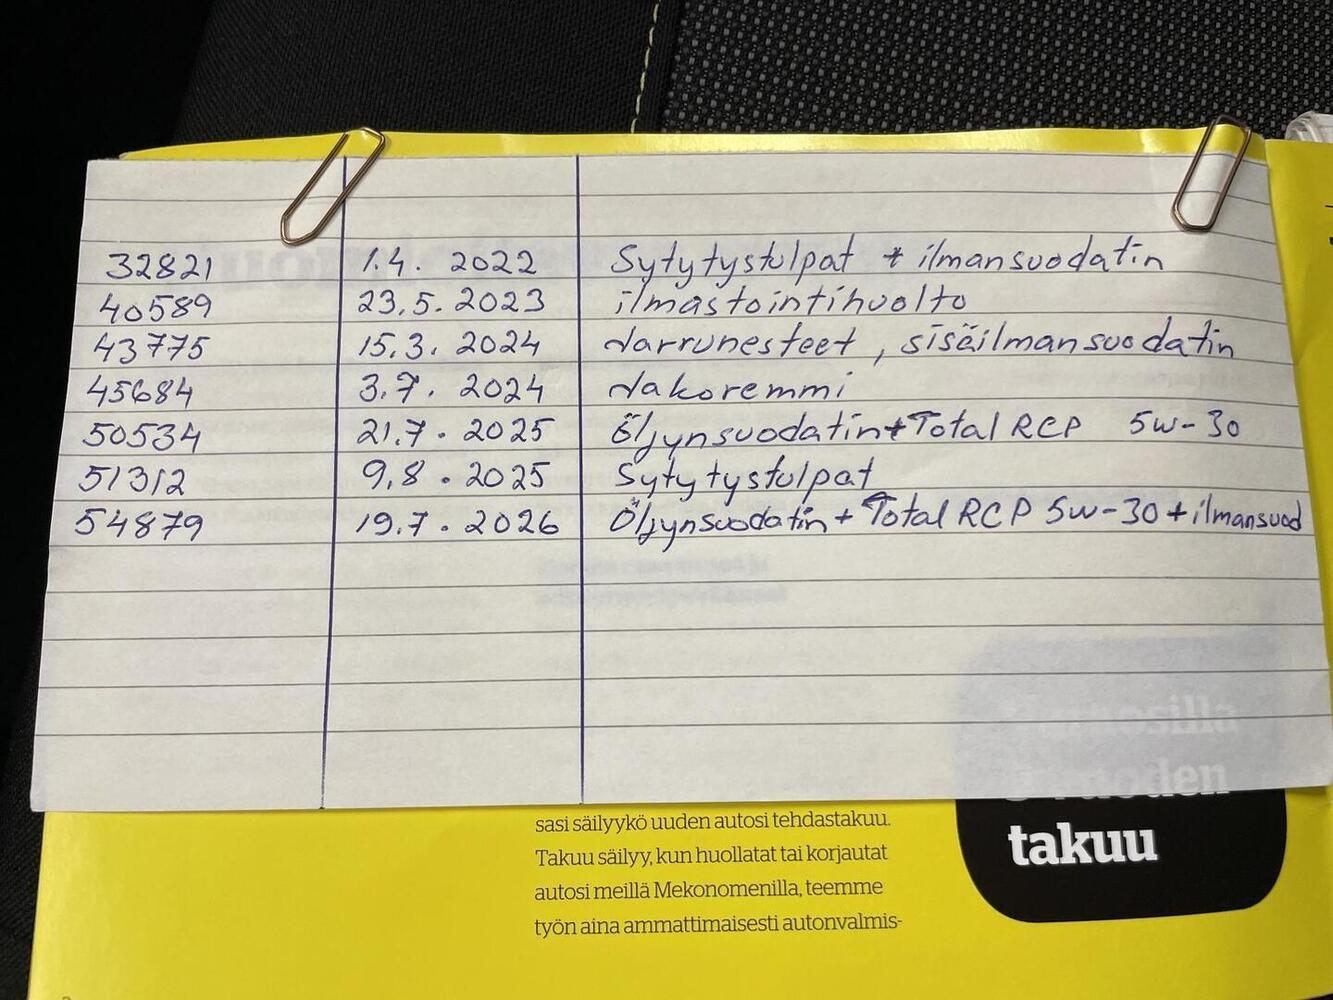 32821 1.4. 2022 Sytytystulpat + ilmansuodatin
40589 23.5. 2023 ilmastointihuolto
43775 15.3. 2024 Jarrunesteet, sisäilmansuodatin
45684 3.7. 2024 Jakoremmi
50534 21.7. 2025 Öljynsuodatin + Total RCP 5W-30
51312 9.8. 2025 Sytytystulpat
54879 19.7. 2026 Öljynsuodatin + Total RCP 5W-30 + ilmansuod
sasi säilyykö uuden autosi tehdastakuu.
Takuu säilyy, kun huollatat tai korjautat
autosi meillä Mekonomenilla, teemme
työn aina ammattimaisesti autonvalmis-
takuu